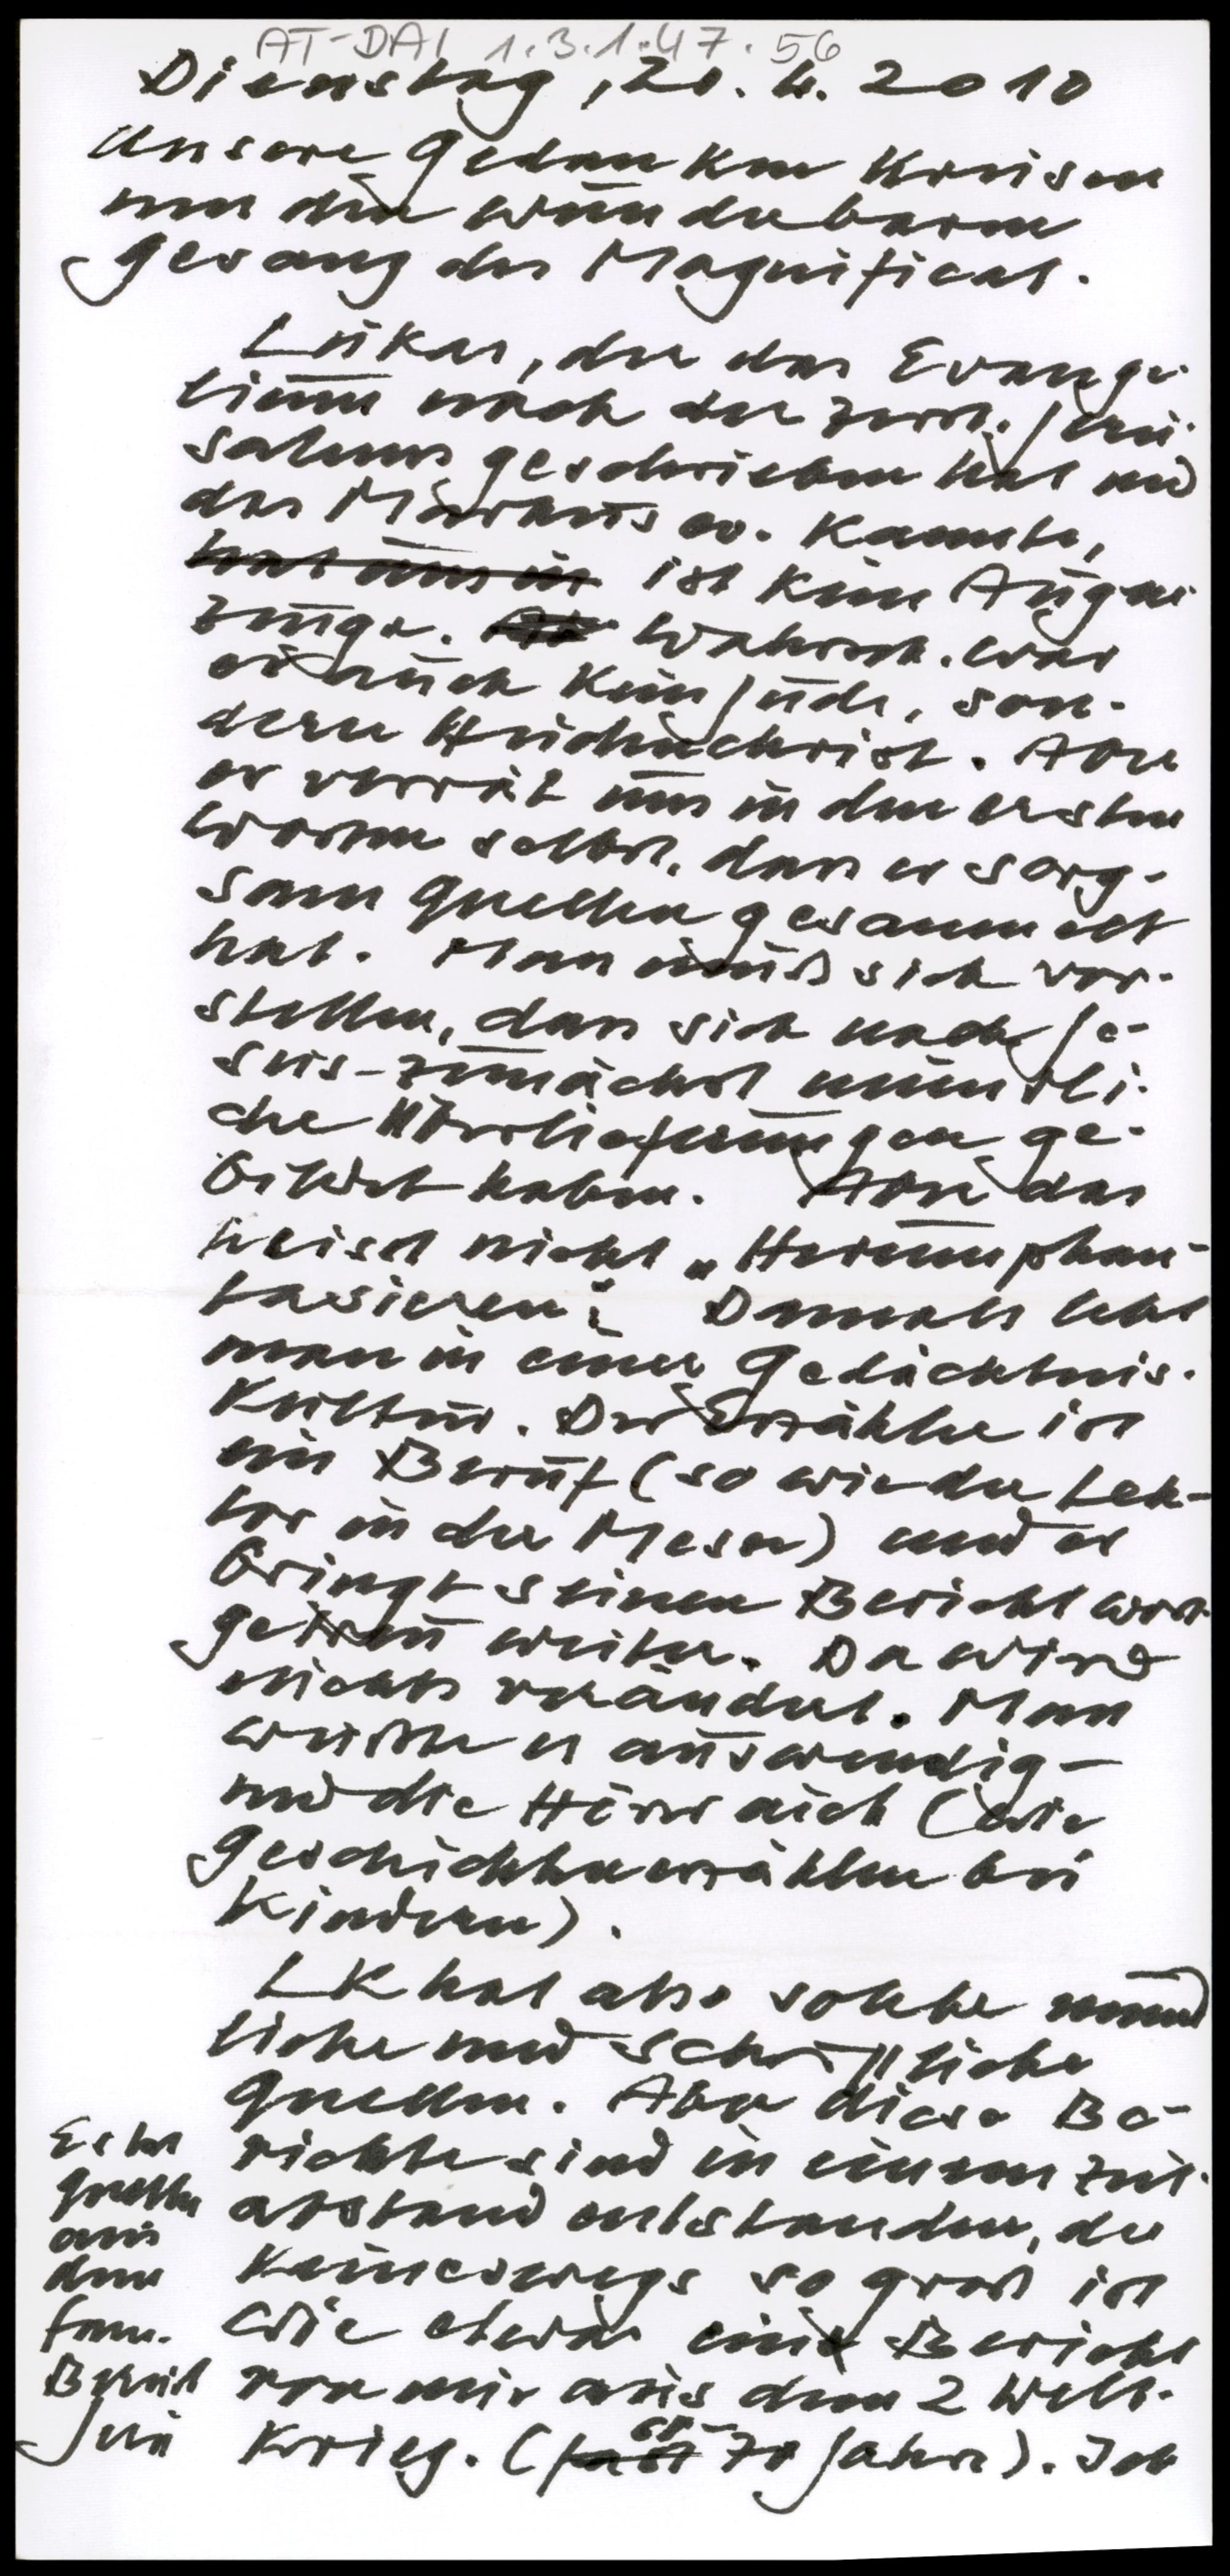 AT-DAI 1.3.1.47.56
Dienstag, 20. 4. 2010
Unsere Gedanken kreisen
um den wunderbaren
Gesang des Magnificat.
Lukas, der das Evange-
lium nach der Zerst. Jeru-
salems geschrieben hat und
das Markus ev. kannte,
ist kein Augen
zeuge. Wahrsch. war
er auch kein Jude, son-
dern Heidenchrist. Aber
er verrät uns in den ersten
Worten selbst, dass er sorg-
sam Quellen gesammelt
hat. Man muß sich vor-
stellen, dass sich nach Je-
sus - zunächst mündli-
che Überlieferungen ge-
bildet haben. Aber das
heisst nicht "Herumphan-
tasieren". Damals lebt
man in einer Gedächtnis-
Kultur. Der Erzähler ist
ein Beruf (so wie der Lek-
tor in der Messe) und er
bringt seinen Bericht wort
getreu weiter. Da wird
nichts verändert. Man
wußte es auswendig -
und die Hörer auch (wie
Geschichtenerzählen bei
Kindern).
LK hat also solche münd
liche und schriftliche
Quellen. Aber diese Be-
richte sind in einem Zeit-
abstand entstanden, der
keineswegs so groß ist
wie etwa ein Bericht
von mir aus dem 2 Welt-
krieg. (70 Jahre). Ich
Es hat
Quellen
aus
dem
fam.
Bereich
Jesu